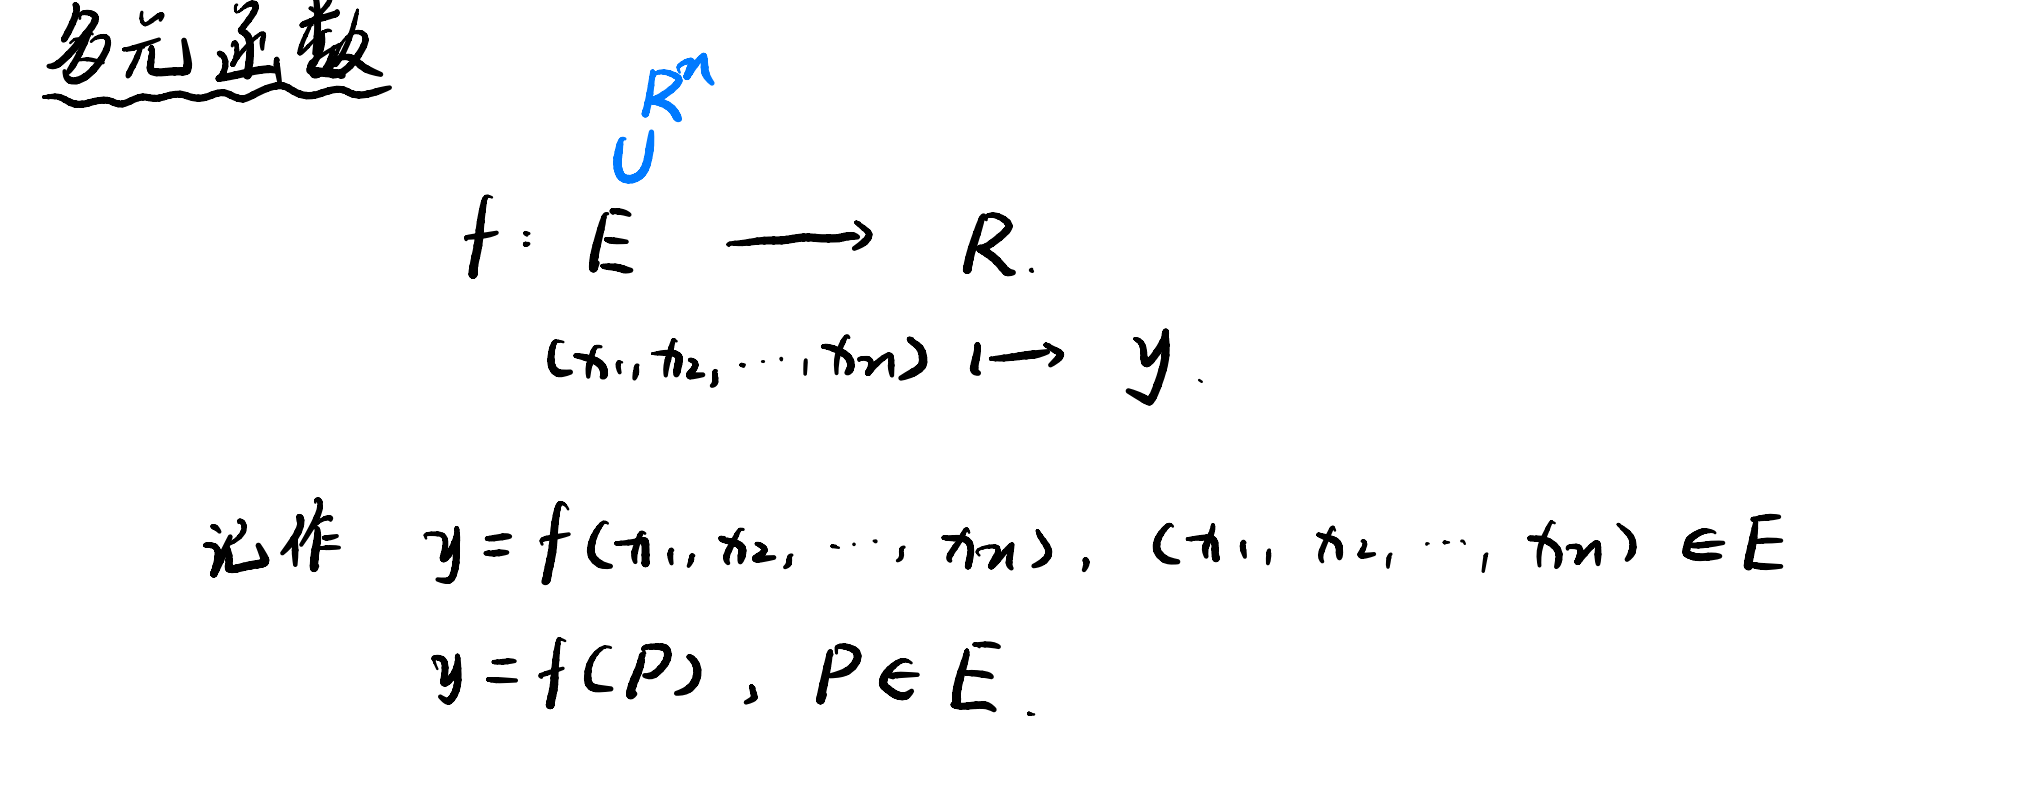 多元函数
Rⁿ
∪
f: E ⟶ R.
(x₁, x₂, ⋯, xₙ) ⟼ y.
记作 y = f(x₁, x₂, ⋯, xₙ), (x₁, x₂, ⋯, xₙ) ∈ E
y = f(P), P ∈ E.